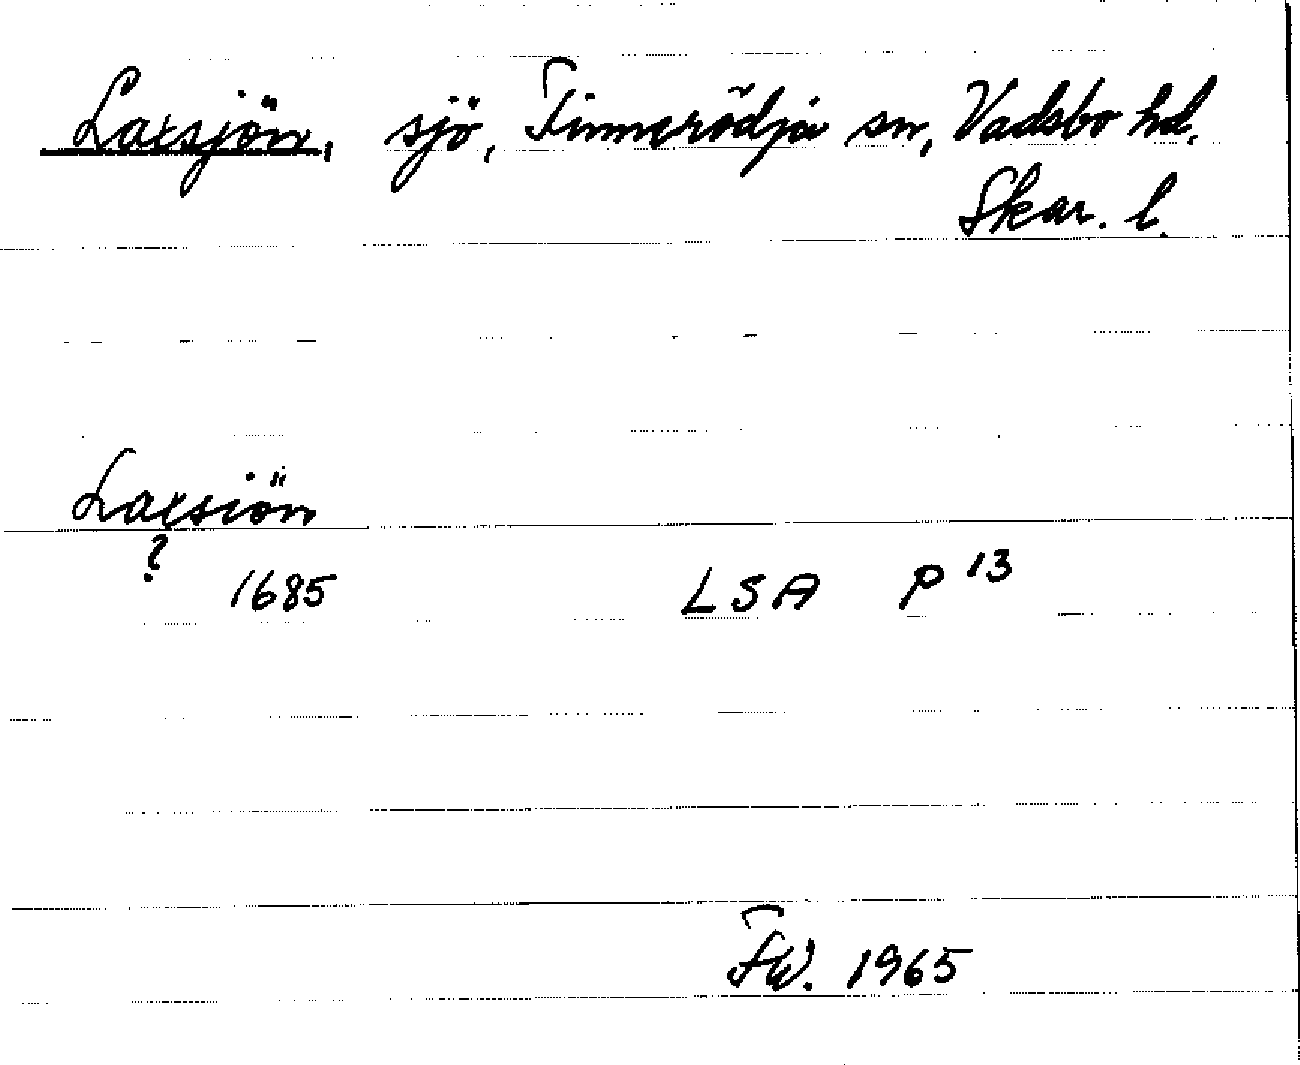 Laxsjön, sjö, Finnerödja sn, Vadsbo hd.
Skar. l.
Laxsiön
?
1685 LSA P 13
FW. 1965